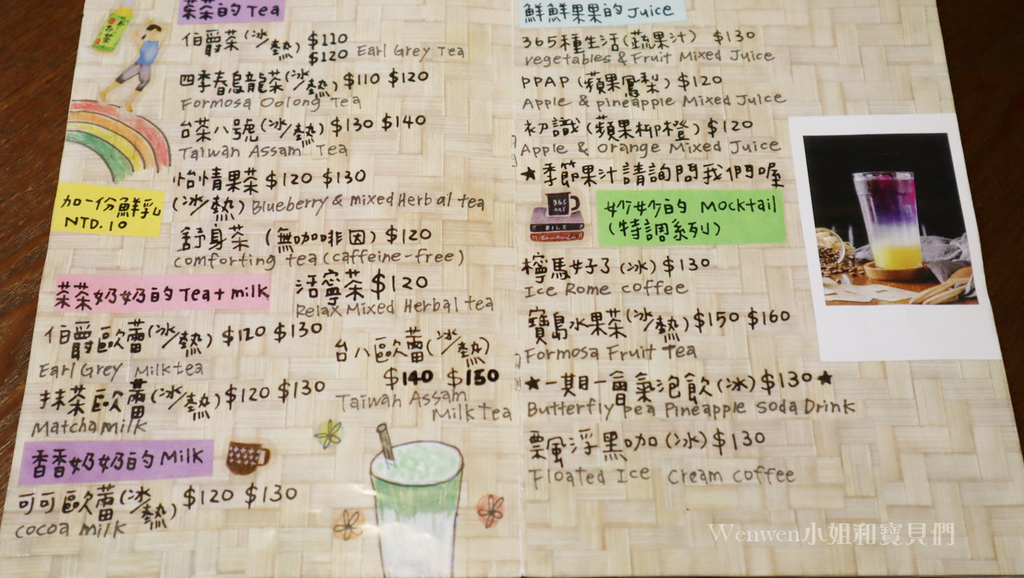 茶茶的Tea
伯爵茶(冰/熱) $110 $120 Earl Grey Tea
四季春烏龍茶(冰/熱) $110 $120
Formosa Oolong Tea
台茶八號(冰/熱) $130 $140
Taiwan Assam Tea
怡情果茶 $120 $130
(冰/熱) Blueberry & mixed Herbal tea
加一份鮮乳
NTD.10
舒身茶 (無咖啡因) $120
comforting tea (caffeine-free)
活寧茶 $120
Relax Mixed Herbal tea
茶茶奶奶的Tea+milk
伯爵歐蕾(冰/熱) $120 $130
Earl Grey Milktea
台八歐蕾(冰/熱)
$140 $150
Taiwan Assam
Milk Tea
抹茶歐蕾(冰/熱) $120 $130
Matcha milk
香香奶奶的Milk
可可歐蕾(冰/熱) $120 $130
cocoa milk
鮮鮮果果的Juice
365種生活(蔬果汁) $130
vegetables & Fruit Mixed Juice
PPAP (蘋果鳳梨) $120
Apple & pineapple Mixed Juice
初識(蘋果柳橙) $120
Apple & Orange Mixed Juice
★季節果汁請詢問我們喔
365
DAY
妙妙的 Mocktail
(特調系列)
檸馬好了(冰) $130
Ice Rome coffee
寶島水果茶(冰/熱) $150 $160
Formosa Fruit Tea
★一期一會氣泡飲(冰) $130★
Butterfly pea Pineapple soda Drink
飄風浮黑咖(冰) $130
Floated Ice cream coffee
Wenwen小姐和寶貝們